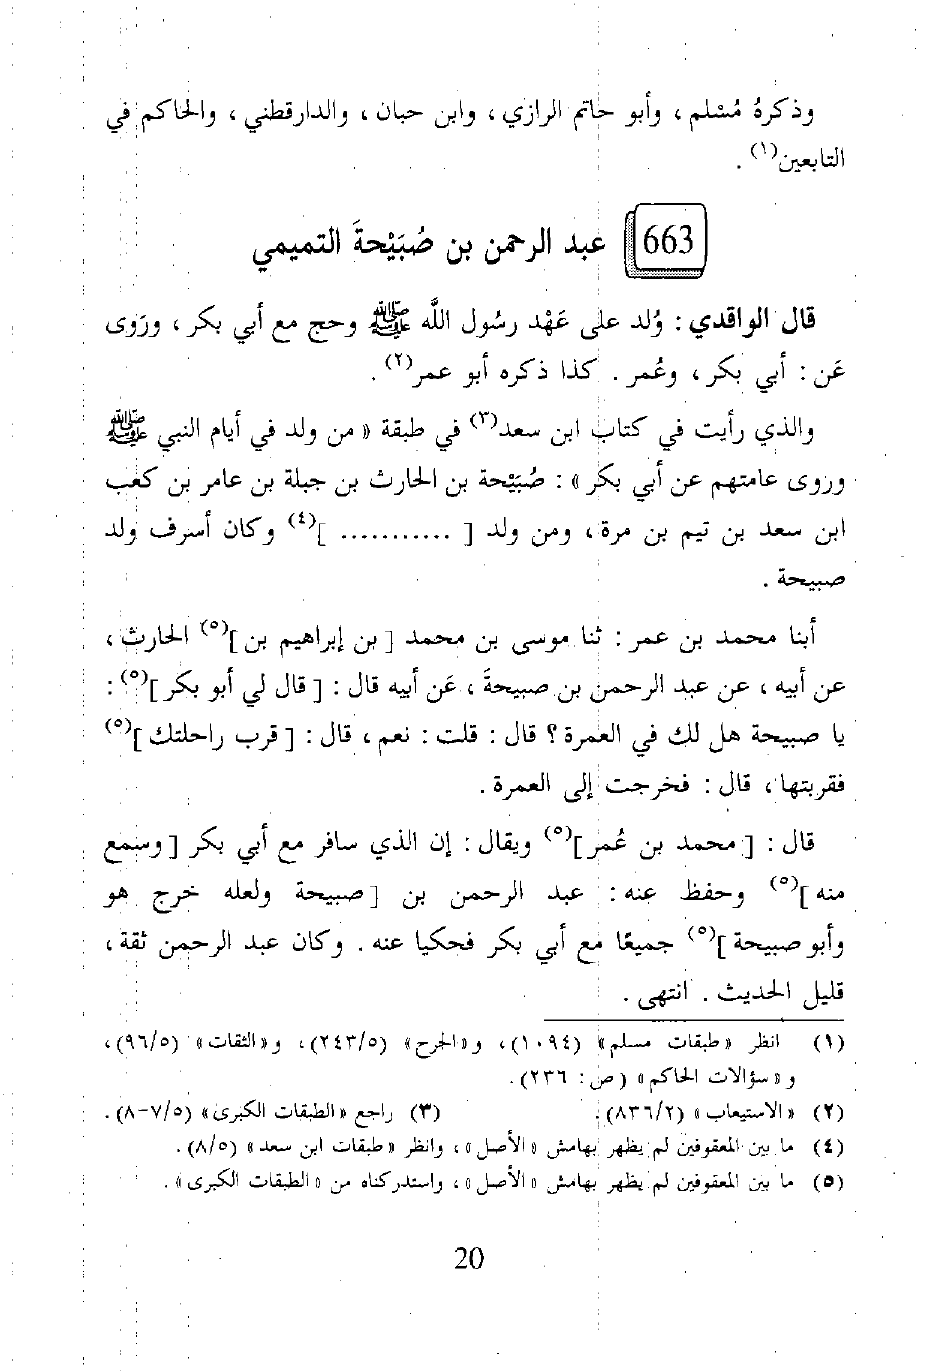 وذكرهُ مُسْلم ، وأبو حاتم الرازي ، وابن حبان ، والدارقطني ، والحاكم في
التابعين(١) .
663 عبد الرحمن بن صُبَيْحةَ التميمي
قال الواقدي : وُلد على عَهْد رسُول اللَّه ﷺ وحج مع أبي بكر ، ورَوى
عَن : أبي بكر ، وعُمر . كذا ذكره أبو عمر(٢) .
والذي رأيت في كتاب ابن سعد(٣) في طبقة « من ولد في أيام النبي ﷺ
وروى عامتهم عن أبي بكر » : صُبَيْحة بن الحارث بن جبلة بن عامر بن كعب
ابن سعد بن تيم بن مرة ، ومن ولد [ ........... ](٤) وكان أسرف ولد
صبيحة .
أبنا محمد بن عمر : ثنا موسى بن محمد [ بن إبراهيم بن ](٥) الحارث ،
عن أبيه ، عن عبد الرحمن بن صبيحةَ ، عَن أبيه قال : [ قال لي أبو بكر ](٥) :
يا صبيحة هل لك في العمرة ؟ قال : قلت : نعم ، قال : [ قرب راحلتك ](٥)
فقربتها ، قال : فخرجت إلى العمرة .
قال : [ محمد بن عُمر ](٥) ويقال : إن الذي سافر مع أبي بكر [ وسمع
منه ](٥) وحفظ عنه : عبد الرحمن بن [ صبيحة ولعله خرج هو
وأبو صبيحة ](٥) جميعًا مع أبي بكر فحكيا عنه . وكان عبد الرحمن ثقة ،
قليل الحديث . انتهى .
(١) انظر « طبقات مسلم » (١٠٩٤) ، و« الجرح » (٢٤٣/٥) ، و« الثقات » (٩٦/٥) ،
و « سؤالات الحاكم » ( ص : ٢٣٦ ) .
(٢) « الاستيعاب » (٨٣٦/٢) . (٣) راجع « الطبقات الكبرى » (٧/٥-٨) .
(٤) ما بين المعقوفين لم يظهر بهامش « الأصل » ، وانظر « طبقات ابن سعد » (٨/٥) .
(٥) ما بين المعقوفين لم يظهر بهامش « الأصل » ، واستدركناه من « الطبقات الكبرى » .
20